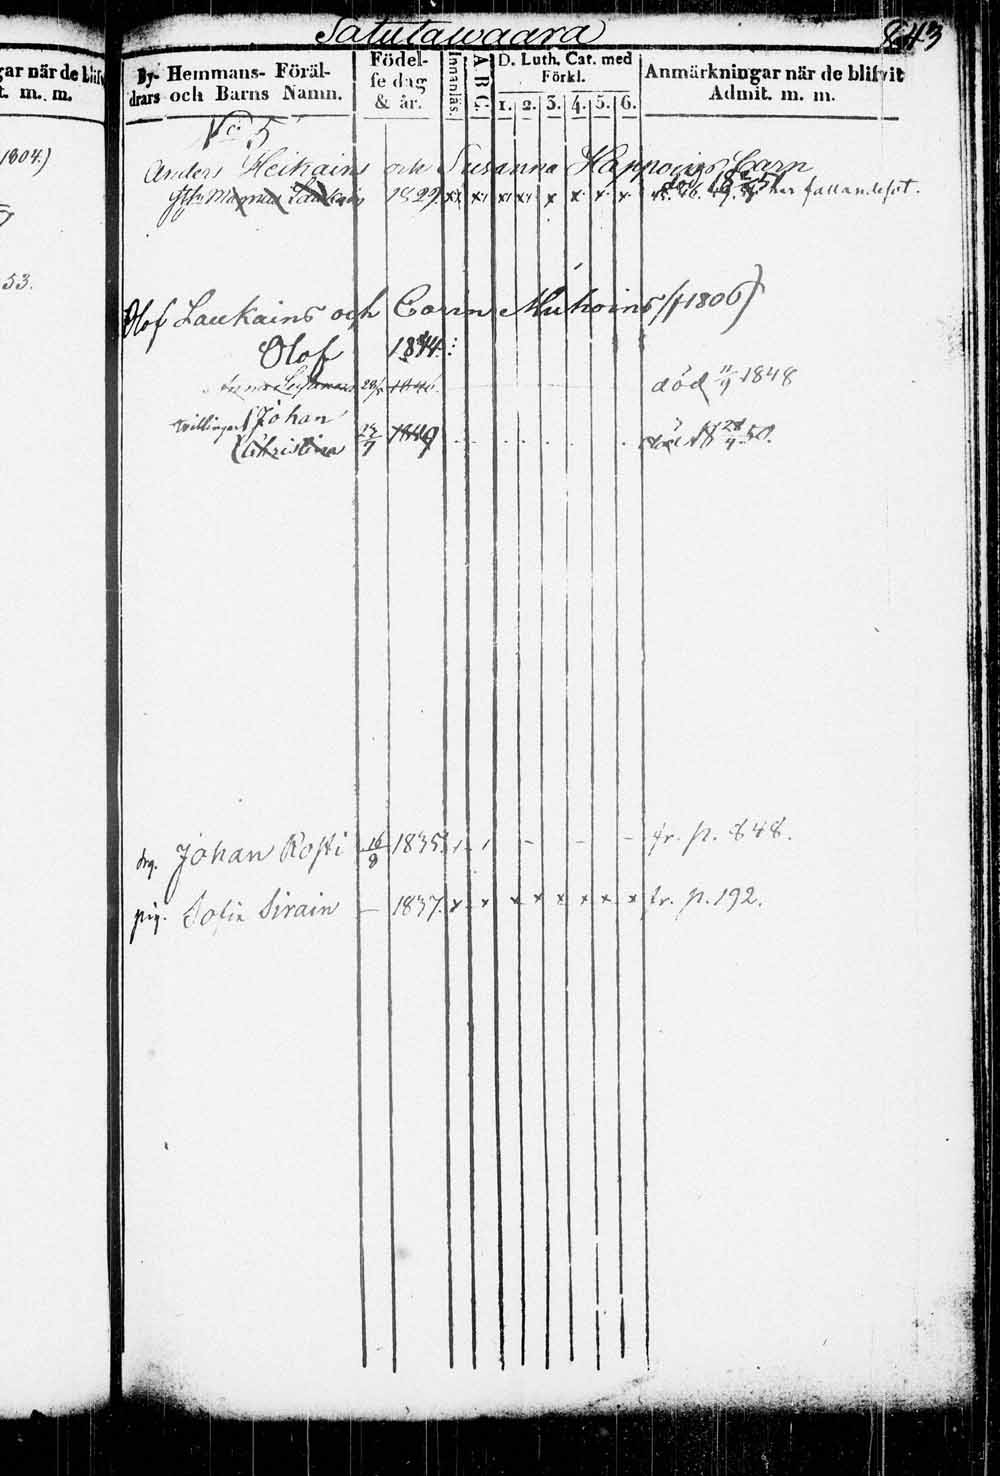 Satutawaara
843
gar när de blifv
t. m. m.
1804.)
53.
By- Hemmans- Föräl-
drars och Barns Namn.
Födel-
se dag
& år.
Innanläs.
A B C.
D. Luth. Cat. med
Förkl.
1. 2. 3. 4. 5. 6.
Anmärkningar när de blifvit
Admit. m. m.
No 5
Anders Heikains och Susanna Happoins Barn
Magnus Laukain 1829. x x x x x x x x har fallandesot.
Olof Laukains och Carin Muhoins (f 1806)
Olof 1834.
1846. död 11/9 1848
Tvillingar Johan
Christina 12/7 1849 död 28/4 50.
drg. Johan Rossi 16/8 1835. fr. p. 848.
pig. Sofia Sirain — 1837. x x x x x x x x fr. p. 192.